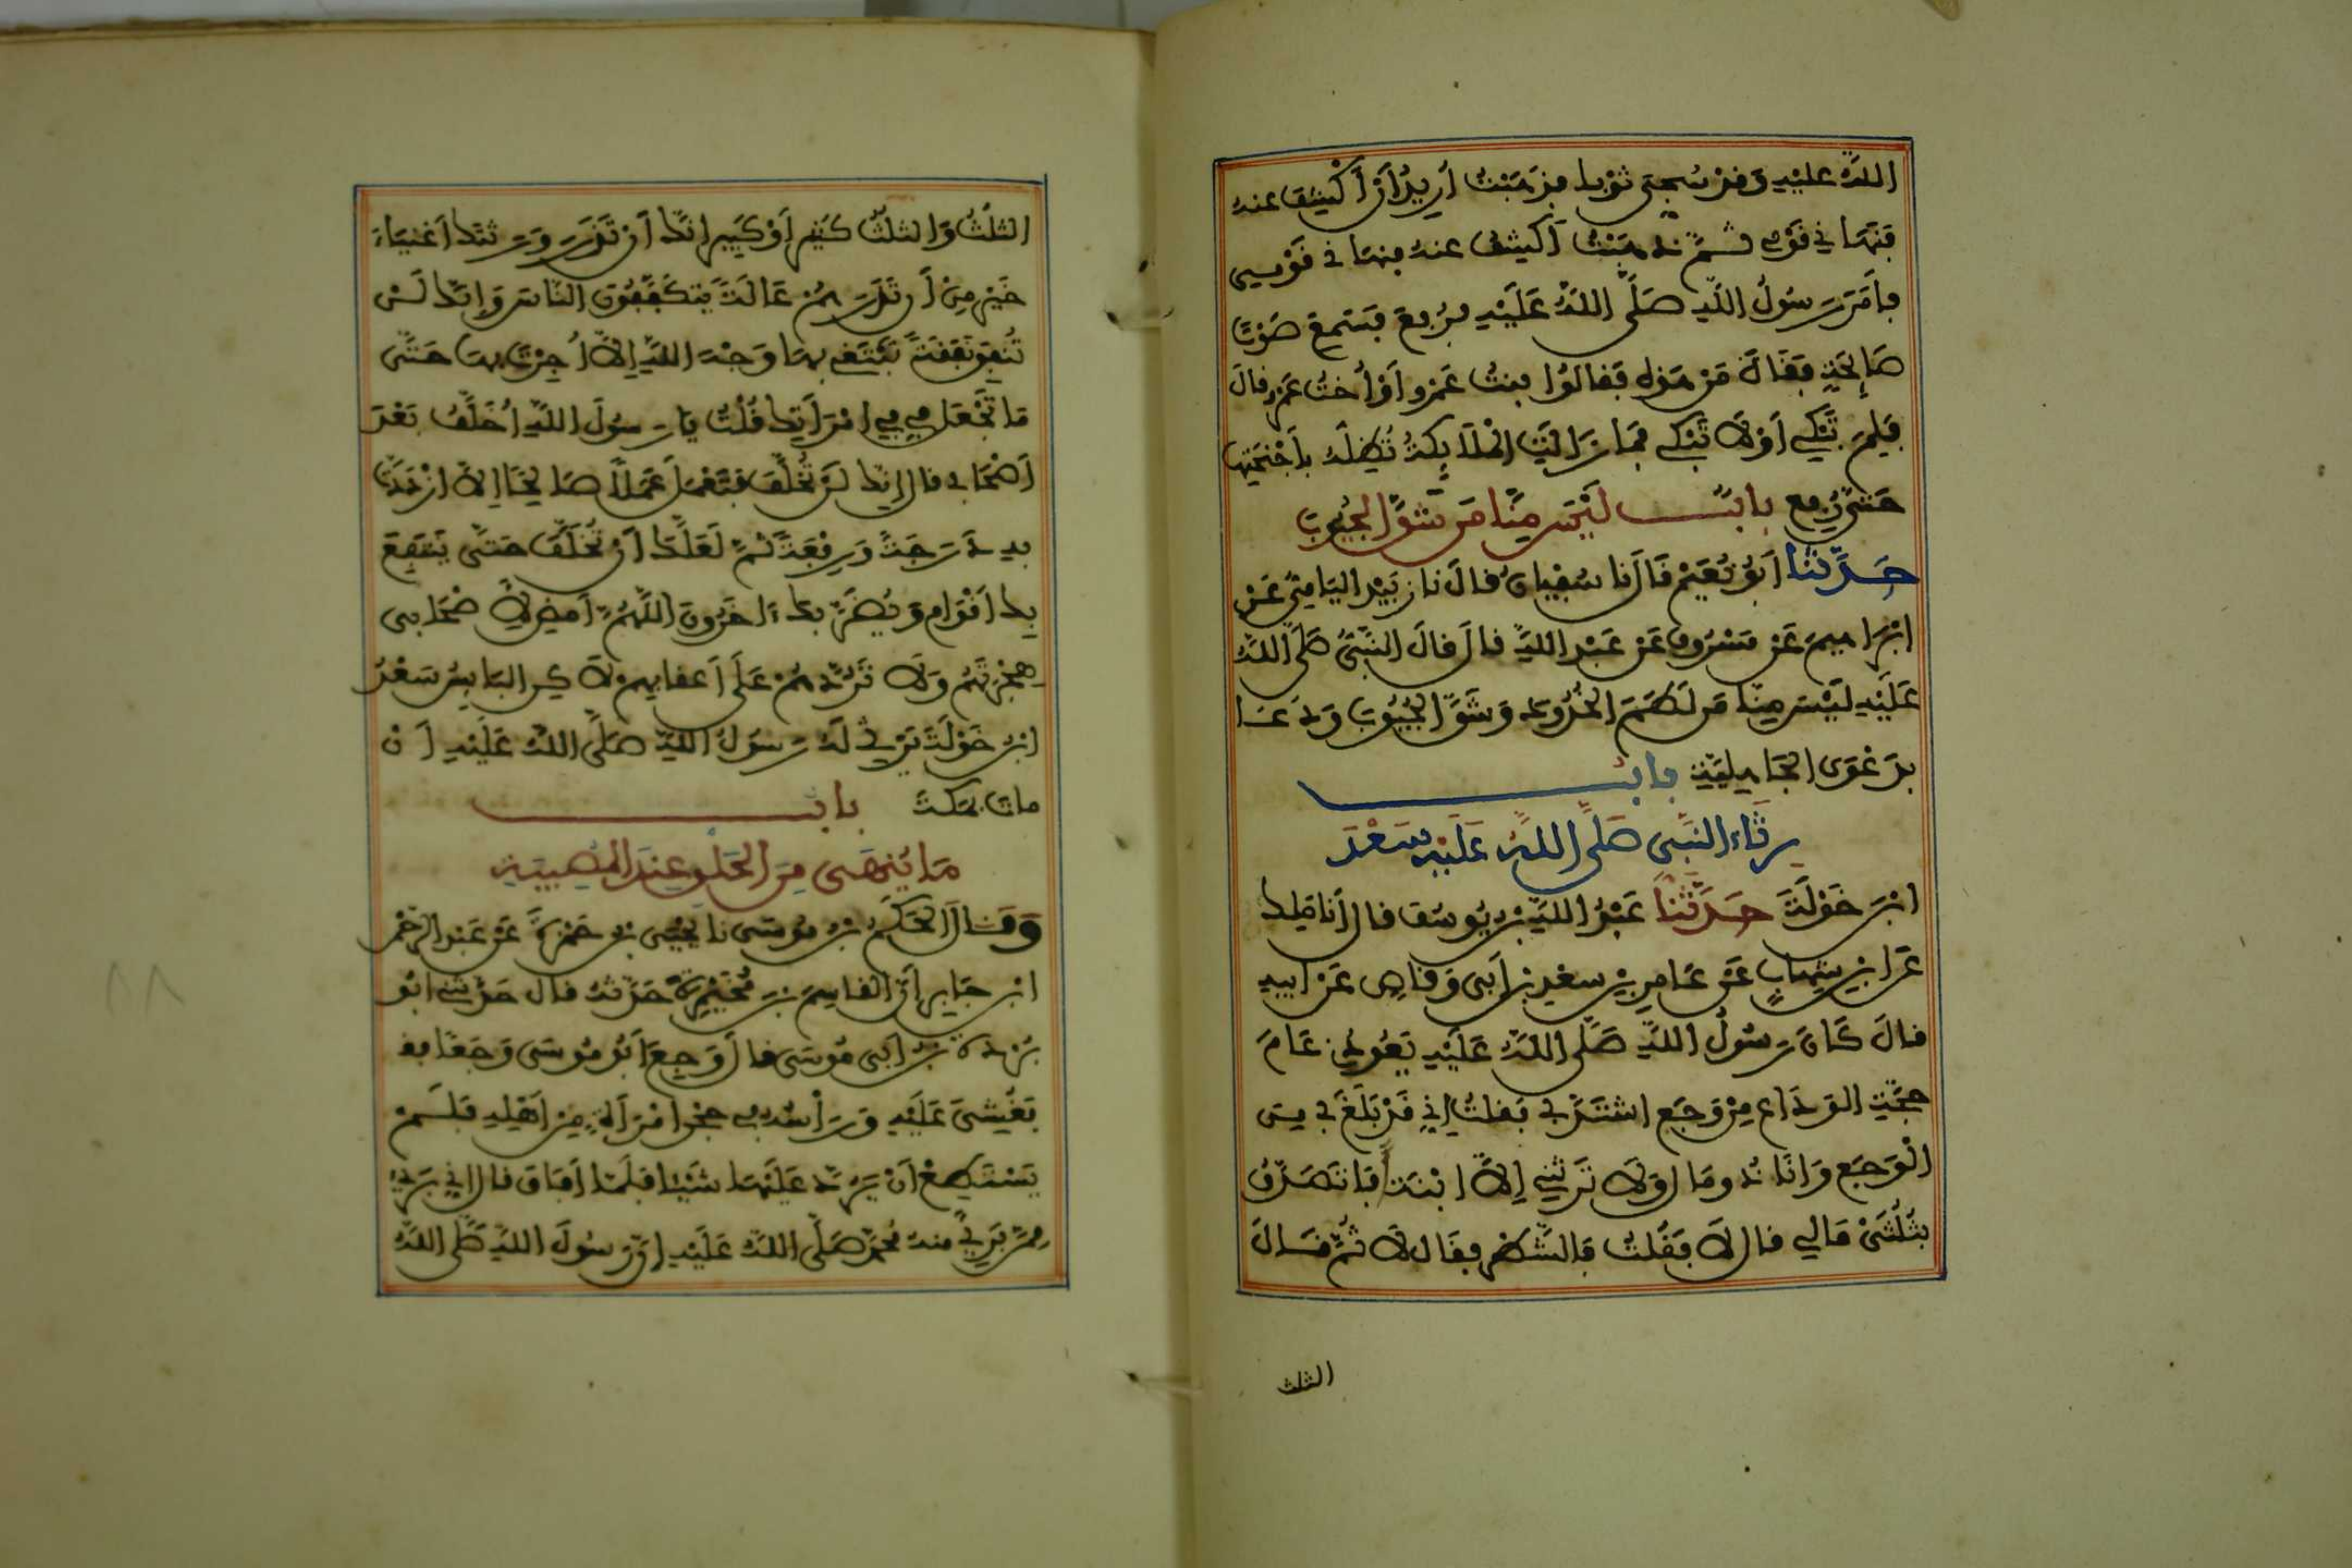 اللَّهُ عليْهِ وَقَدْ سُجِّيَ ثَوْبا فذَهَبْتُ أُرِيدُ أَنْ أَكْشِفَ عنه
فَنَهَانِي قَوْمِي ثُمَّ ذهَبْتُ أَكْشِفُ عنهُ فنهَانِي قَوْمِي
فأَمَرَ رَسُولُ اللَّهِ صَلَّى اللَّهُ عَلَيْهِ فرُفِعَ فسَمِعَ صَوْتَ
صَائِحَةٍ فقَالَ مَنْ هَذِهِ فَقالُوا بنتُ عَمْرو أَوْ أُختُ عَمْرو قالَ
فَلِمَ تَبْكِي أَوْ لَا تَبْكي فمَا زَالَتِ الْمَلَائِكَةُ تُظِلُّهُ بأَجْنِحَتِهَا
حَتَّى رُفِعَ بابٌ لَيْسَ مِنَّا مَن شَقَّ الجُيُوبَ
حَدَّثنَا أَبُو نُعَيْمٍ قَالَ نا سُفْيانُ قالَ نا زُبَيْد اليَامِيُّ عَنْ
إِبْرَاهِيمَ عَنْ مَسْرُوقٍ عَنْ عَبْدِ اللَّهِ قال قالَ النَّبِيُّ صَلَّى اللَّهُ
عَلَيْهِ لَيْسَ مِنَّا مَن لَطَمَ الخُدُودَ وَشَقَّ الجُيُوبَ وَدَعَا
بِدَعْوَى الجَاهِلِيَّةِ بابُ
رِثَاءِ النَّبِيِّ صَلَّى اللَّهُ عَلَيْهِ سَعْدَ
ابْنَ خَوْلَةَ حَدَّثَنَا عَبْدُ اللَّهِ بْنُ يُوسُفَ قال أَنا مَلِك
عَنِ ابْنِ شِهَابٍ عَنْ عَامِرِ بْنِ سعْدِ بْنِ أَبِي وَقاصٍ عَنْ أبيهِ
قالَ كَانَ رَسُولُ اللَّهِ صَلَّى اللَّهُ عَلَيْهِ يَعُودُنِي عَامَ
حِجَّةِ الوَدَاعِ مِنْ وَجَعٍ اشْتَدَّ بِي فَقلتُ إِنِّي قَدْ بَلَغَ بِي مِنَ
الْوَجَعِ وَأَنَا ذُو مَالٍ وَلَا تَرِثُنِي إِلَّا ابْنَة أَفَأَتَصَدَّقُ
بثُلُثَيْ مَالِي قال لَا فَقُلتُ فَالشَّطْرِ فقَالَ لَا ثُمَّ قَالَ
الثلث
الثلُثُ وَالثلُثُ كَثِير أَوْ كَبِير إِنَّكَ أَنْ تَذَرَ وَرَثَتَكَ أَغْنِيَاءَ
خَيْر مِنْ أَنْ تَذَرَهُمْ عَالَةً يَتكَفَّفُونَ النَّاسَ وَإِنَّكَ لَنْ
تُنفِقَ نَفَقَةً تَبْتَغِي بِهَا وَجْهَ اللَّهِ إِلَّا أُجِرْتَ بِهَا حَتَّى
مَا تَجْعَل فِي فِي امْرَأَتِكَ قُلْتُ يَا رَسُولَ اللَّهِ أُخَلَّفُ بَعْدَ
أَصْحَابِي قال إِنَّكَ لَنْ تُخَلَّفَ فتَعْمَلَ عَمَلًا صَالِحًا إِلَّا ازْدَدْتَ
بِهِ دَرَجَةً وَرِفْعَةً ثُمَّ لَعَلَّكَ أَنْ تُخَلَّفَ حَتَّى يَنْتَفِعَ
بِكَ أَقْوَام وَيُضَرَّ بِكَ ءَاخَرُونَ اللَّهُمَّ أَمْضِ لِأَصْحَابِي
هِجْرَتَهُمْ وَلَا تَرُدَّهُمْ عَلَى أَعقابِهِمْ لَاكِنِ البَائِسُ سَعْدُ
ابْنُ خَوْلَةَ يَرْثِي لَهُ رَسُولُ اللَّهِ صَلَّى اللَّهُ عَلَيْهِ أَنْ
ماتَ بِمَكةَ بابُ
مَا يُنهَى مِنَ الحَلْقِ عِندَ المُصِيبَةِ
وَقَالَ الحَكَمُ بْنُ مُوسَى نا يَحْيَى بْنُ حَمْزَةَ عَنْ عَبْدِ الرَّحْمن
ابْنِ جَابِرٍ أَنَّ القاسِمَ بْنَ مُخَيْمِرَةَ حَدَّثهُ قالَ حَدَّثَنِي أَبُو
بُرْدَةَ بْنُ أَبِي مُوسَى قالَ وَجِعَ أَبُو مُوسَى وَجَعًا فـ
ـغُشِيَ عَلَيْهِ وَرَأْسُهُ فِي حِجْرِ امْرَأَةٍ مِنْ أَهْلِهِ فَلَمْ
يَسْتَطِعْ أَنْ يَرُدَّ عَلَيْهَا شَيْئا فلَمَّا أَفَاقَ قال إِنِّي بَرِيءٌ
مِمَّنْ بَرِئَ منهُ مُحَمَّد صَلَّى اللَّهُ عَلَيْهِ إِنَّ رَسُولَ اللَّهِ صَلَّى اللَّهُ